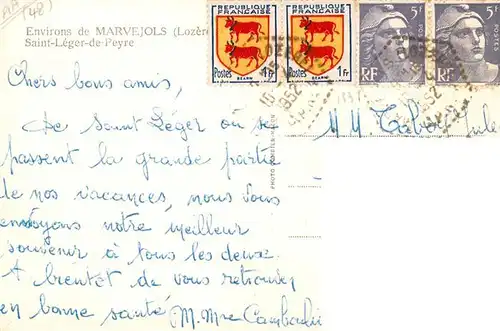 Environs de MARVEJOLS (Lozère
Saint-Léger-de-Peyre
REPUBLIQUE FRANÇAISE
Postes 1Fr
BEARN
REPUBLIQUE FRANÇAISE
Postes 1Fr
BEARN
5F
RF
5F
RF
1952
1952
Chers bons amis,
De Saint Léger où se
passent la grande partie
de nos vacances, nous vous
envoyons notre meilleur
souvenir à tous les deux.
A bientôt de vous retrouver
en bonne santé M. Mme
M M